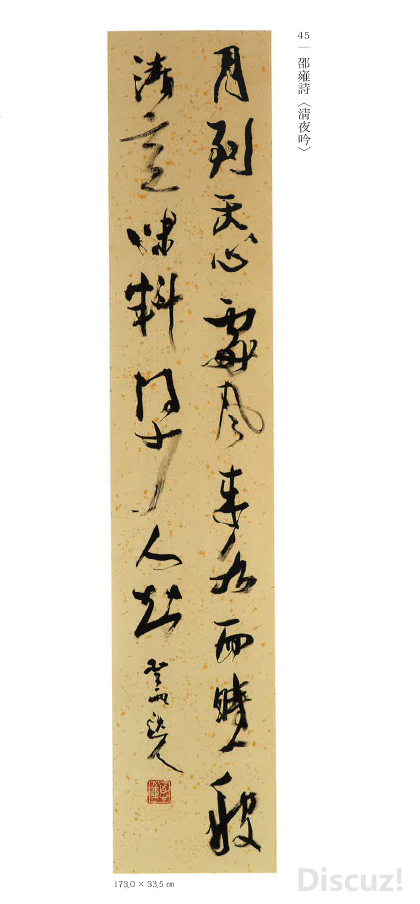 45｜邵雍詩〈清夜吟〉
月到天心處風來水面時一般
清意味料得少人知
173.0 × 33.5 ㎝
Discuz!